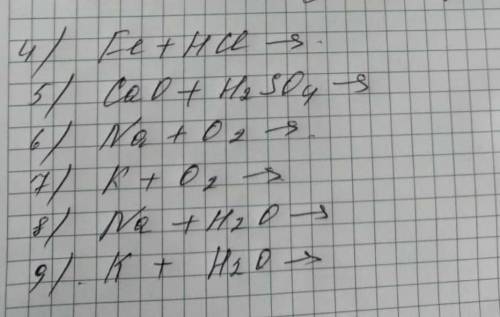 4) Fe + HCl →
5) CaO + H2SO4 →
6) Na + O2 →
7) K + O2 →
8) Na + H2O →
9) K + H2O →